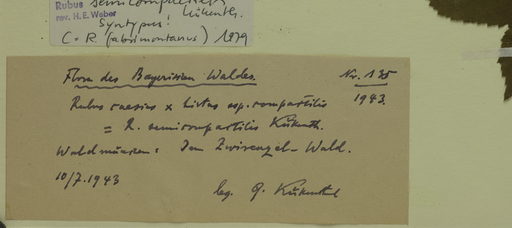 Rubus semicompactilis
rev. H. E. Weber Kükenth.
Syntypus!
1979
Flora des Bayerischen Waldes. Nr. 135
Rubus caesius x hirtus ssp. compactilis 1943.
= R. semicompactilis Kükenth.
Waldmünchen: Wald.
10/7.1943
leg. G. Kükenthal